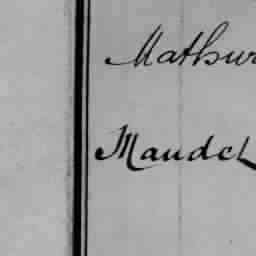 Mathur
Maudet